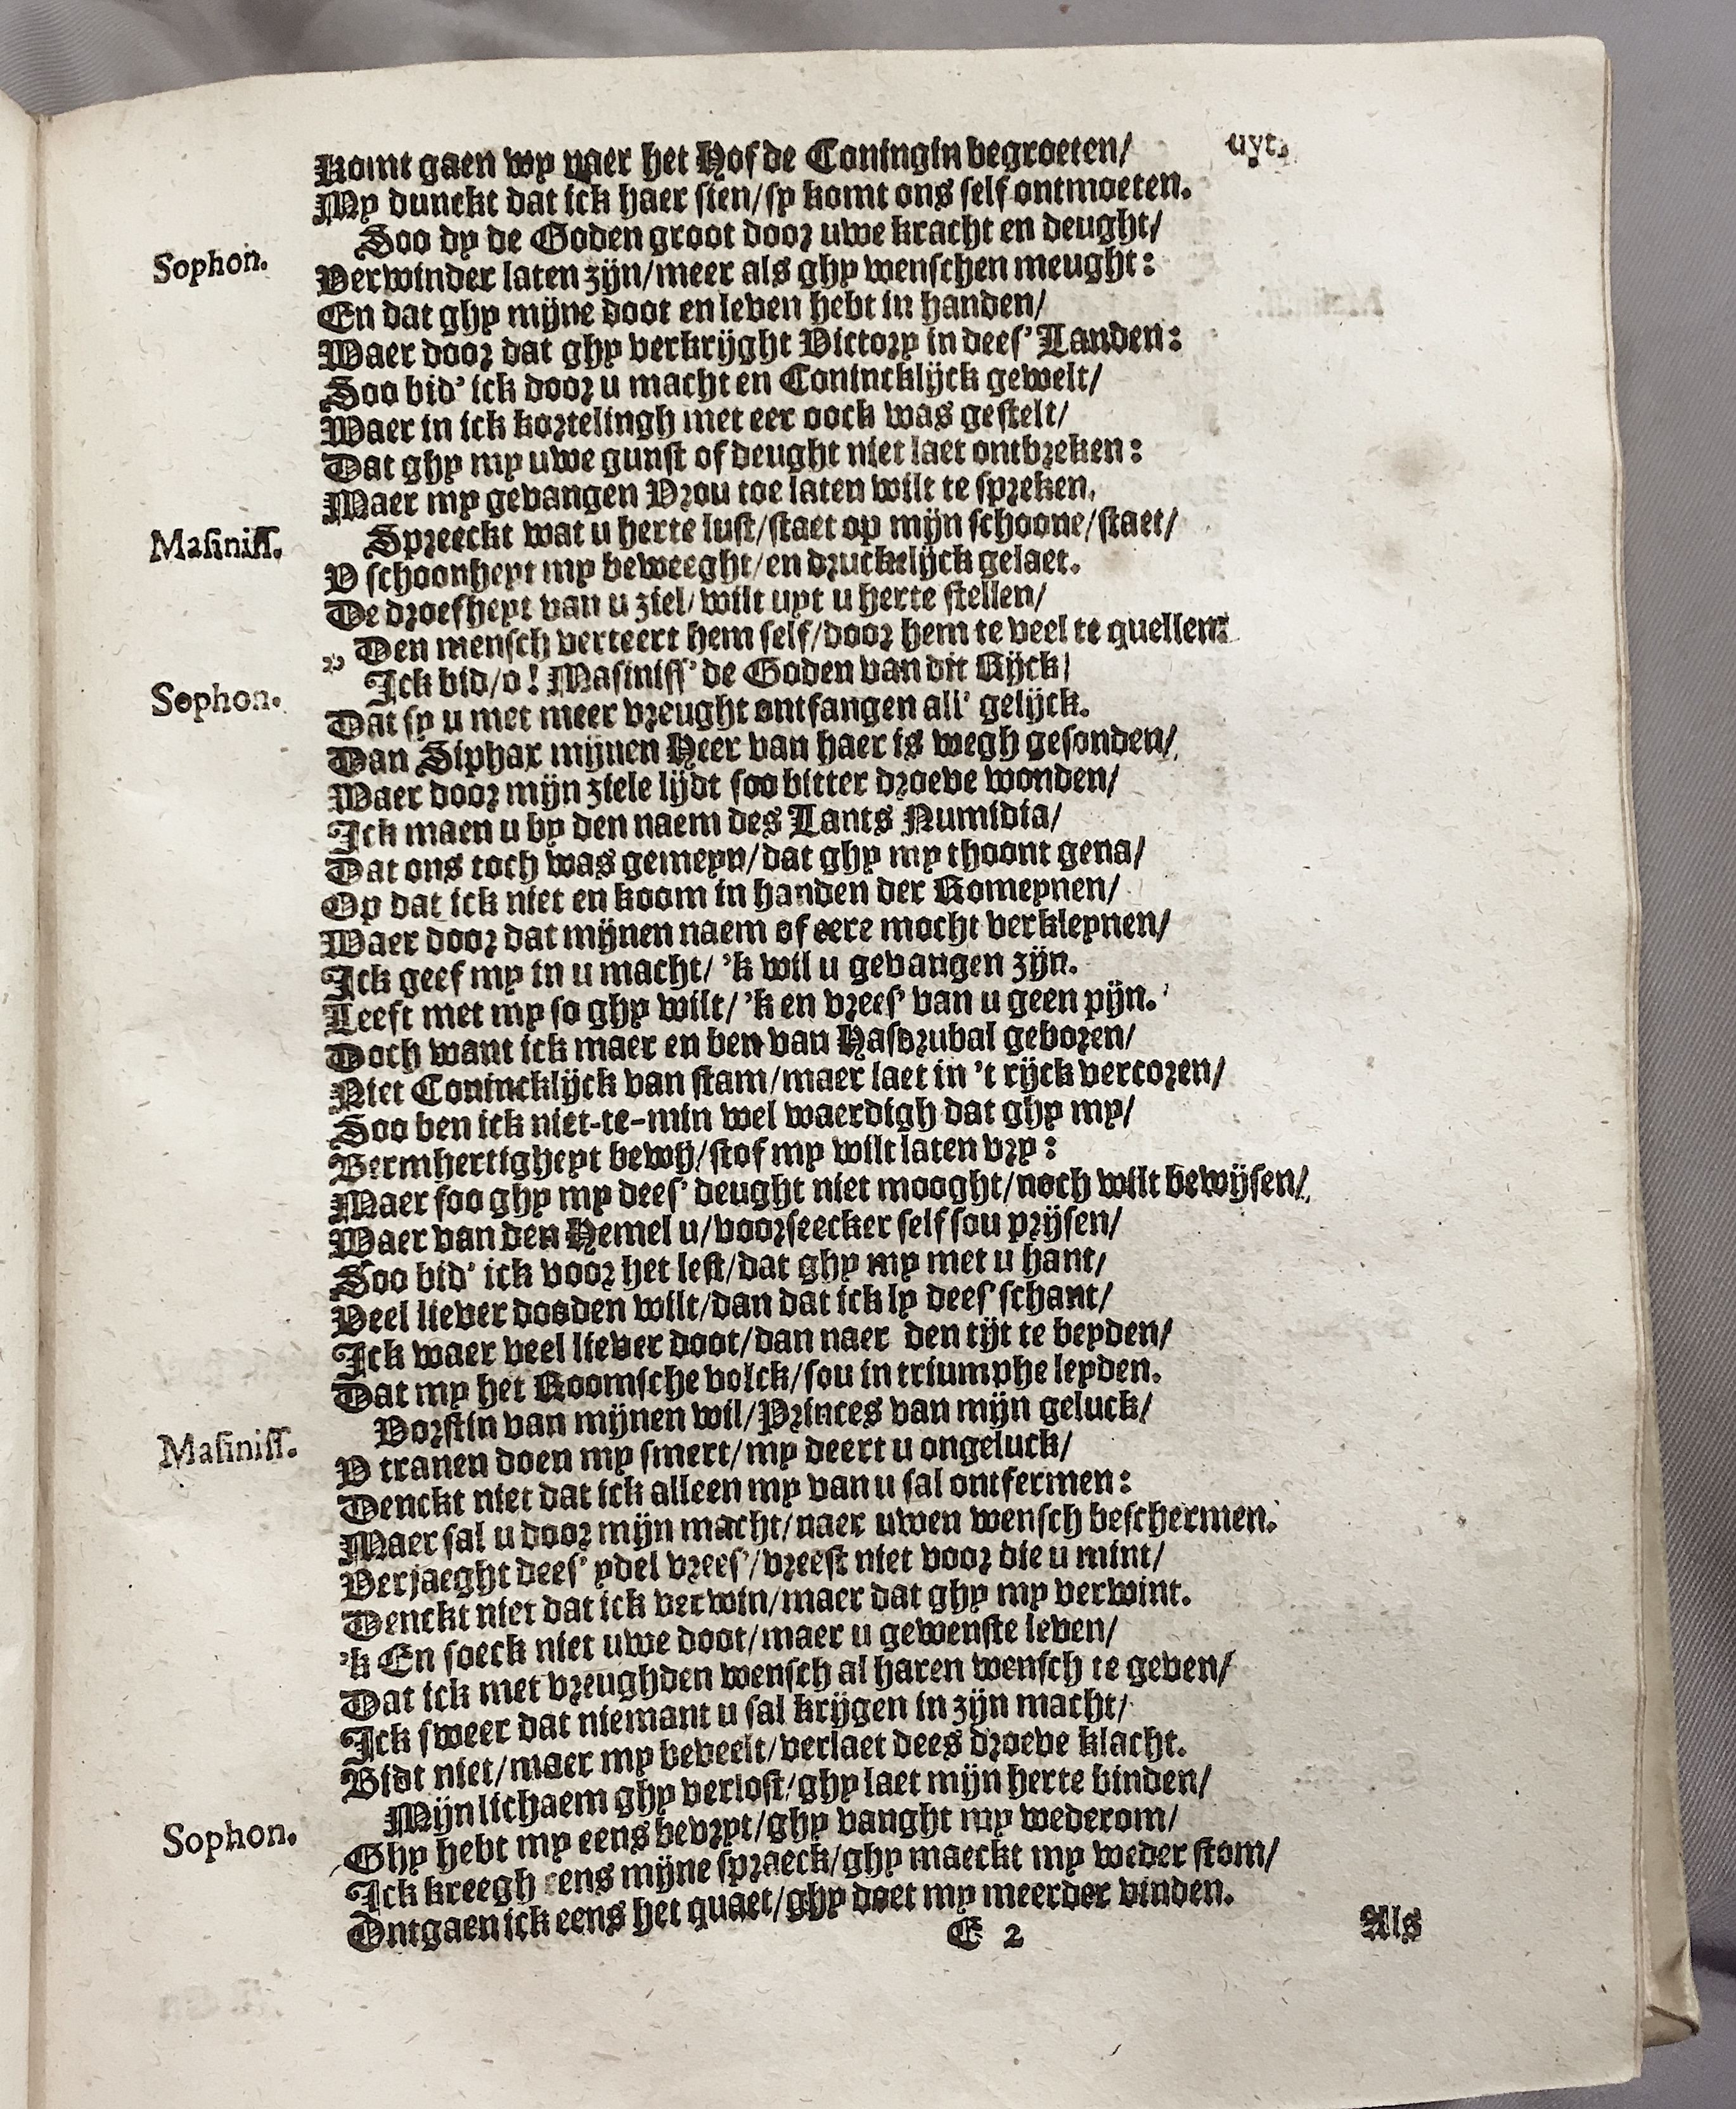 Komt gaen wy naer het Hof de Coningin begroeten/ uyt.
My dunckt dat ick haer sien/sy komt ons self ontmoeten.
Sophon. Soo dy de Goden groot door uwe kracht en deught/
Verwinder laten zijn/meer als ghy wenschen meught:
En dat ghy mijne doot en leven hebt in handen/
Waer door dat ghy verkrijght Victory in dees' Landen:
Soo bid' ick door u macht en Conincklijck gewelt/
Waer in ick kortelingh met eer oock was gestelt/
Dat ghy my uwe gunst of deught niet laet ontbreken:
Maer my gevangen Vrou toe laten wilt te spreken.
Masiniss. Spreeckt wat u herte lust/staet op mijn schoone/staet/
V schoonheyt my beweeght/en druckelijck gelaet.
De droefheyt van u ziel/wilt uyt u herte stellen/
„ Den mensch verteert hem self/door hem te veel te quellen.
Sophon. Ick bid/o! Masiniss' de Goden van dit Rijck/
Dat sy u met meer vreught ontfangen all' gelijck.
Dan Siphax mijnen Heer van haer is wegh gesonden/
Waer door mijn ziele lijdt soo bitter droeve wonden/
Ick maen u by den naem des Lants Numidia/
Dat ons toch was gemeyn/dat ghy my thoont gena/
Op dat ick niet en koom in handen der Romeynen/
Waer door dat mijnen naem of eere mocht verkleynen/
Ick geef my in u macht/ 'k wil u gevangen zijn.
Leeft met my so ghy wilt/ 'k en vrees' van u geen pijn.
Doch want ick maer en ben van Hasdrubal geboren/
Niet Conincklijck van stam/maer laet in 't rijck vercoren/
Soo ben ick niet-te-min wel waerdigh dat ghy my/
Bermhertigheyt bewij/stof my wilt laten vry:
Maer soo ghy my dees' deught niet mooght/noch wilt bewijsen/
Waer van den Hemel u/voorseecker self sou prijsen/
Soo bid' ick voor het lest/dat ghy my met u hant/
Veel liever dooden wilt/dan dat ick ly dees' schant/
Ick waer veel liever doot/dan naer den tijt te beyden/
Dat my het Roomsche volck/sou in triumphe leyden.
Masiniss. Vorstin van mijnen wil/Princes van mijn geluck/
V tranen doen my smert/my deert u ongeluck/
Denckt niet dat ick alleen my van u sal ontfermen:
Maer sal u door mijn macht/naer uwen wensch beschermen.
Verjaeght dees' ydel vrees'/vreest niet voor die u mint/
Denckt niet dat ick verwin/maer dat ghy my verwint.
'k En soeck niet uwe doot/maer u gewenste leven/
Dat ick met vreughden wensch al haren wensch te geven/
Ick sweer dat niemant u sal krijgen in zijn macht/
Bidt niet/maer my beveelt/verlaet dees droeve klacht.
Sophon. Mijn lichaem ghy verlost/ghy laet mijn herte binden/
Ghy hebt my eens bevryt/ghy vanght my wederom/
Ick kreegh eens mijne spraeck/ghy maeckt my weder stom/
Ontgaen ick eens het quaet/ghy doet my meerder vinden.
E 2 Als